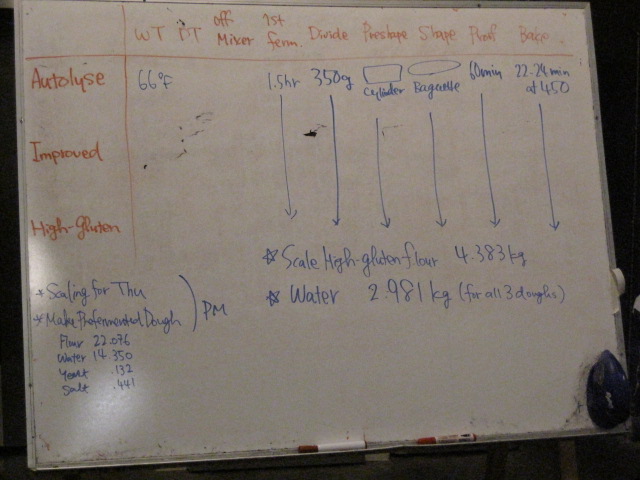 WT DT off Mixer 1st ferm. Divide Preshape Shape Proof Bake
Autolyse 66°F 1.5hr 350g Cylinder Baguette 60min 22-24min at 450
Improved
High-Gluten
☆ Scale High-gluten flour 4.383 kg
☆ Water 2.981 kg (for all 3 doughs)
* Scaling for Thu
* Make Prefermented Dough
PM
Flour 22.076
Water 14.350
Yeast .132
Salt .441